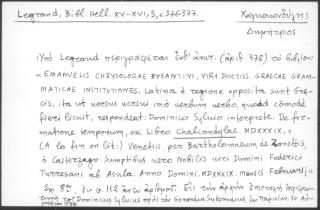 Legrand, Bibl. Hell. XV-XVI, 3, σ. 376-377.
Χαλκοκονδύλης
Δημήτριος
Ὑπὸ Legrand περιγράφεται ἐνθ' ἀνωτ. (ἀριθ. 378) τὸ βιβλίον:
« EMANUELIS CHRYSOLORAE BYSANTINI, VIRI DOCTISS. GRAECAE GRAM-
MATICAE INSTITUTIONES. Latina è regione opposita sunt Græ-
cis, ita ut versus versui imo verbum verbo, quod cōmodè
fieri licuit, respondeat: Dominico Sylvio interprete. De for-
matione temporum, ex Libro Chalcondylae. MDXXXIX. »
(A la fin on lit:) Venetiis, per Bartholomæum de Zanettis,
à Casterzago: Sumptibus vero Nobilis viri Domini Federici
Turresani ab Asula. Anno Domini. MDXXXIX. Mensis Februarij »
Σχ. 8ον, ἐκ φ. 112 ἄνευ ἀριθμοῦ. Εἰς τὴν ἀρχὴν ἐπιστολὴ
τοῦ Dominicus Sylvius πρὸς τὸν